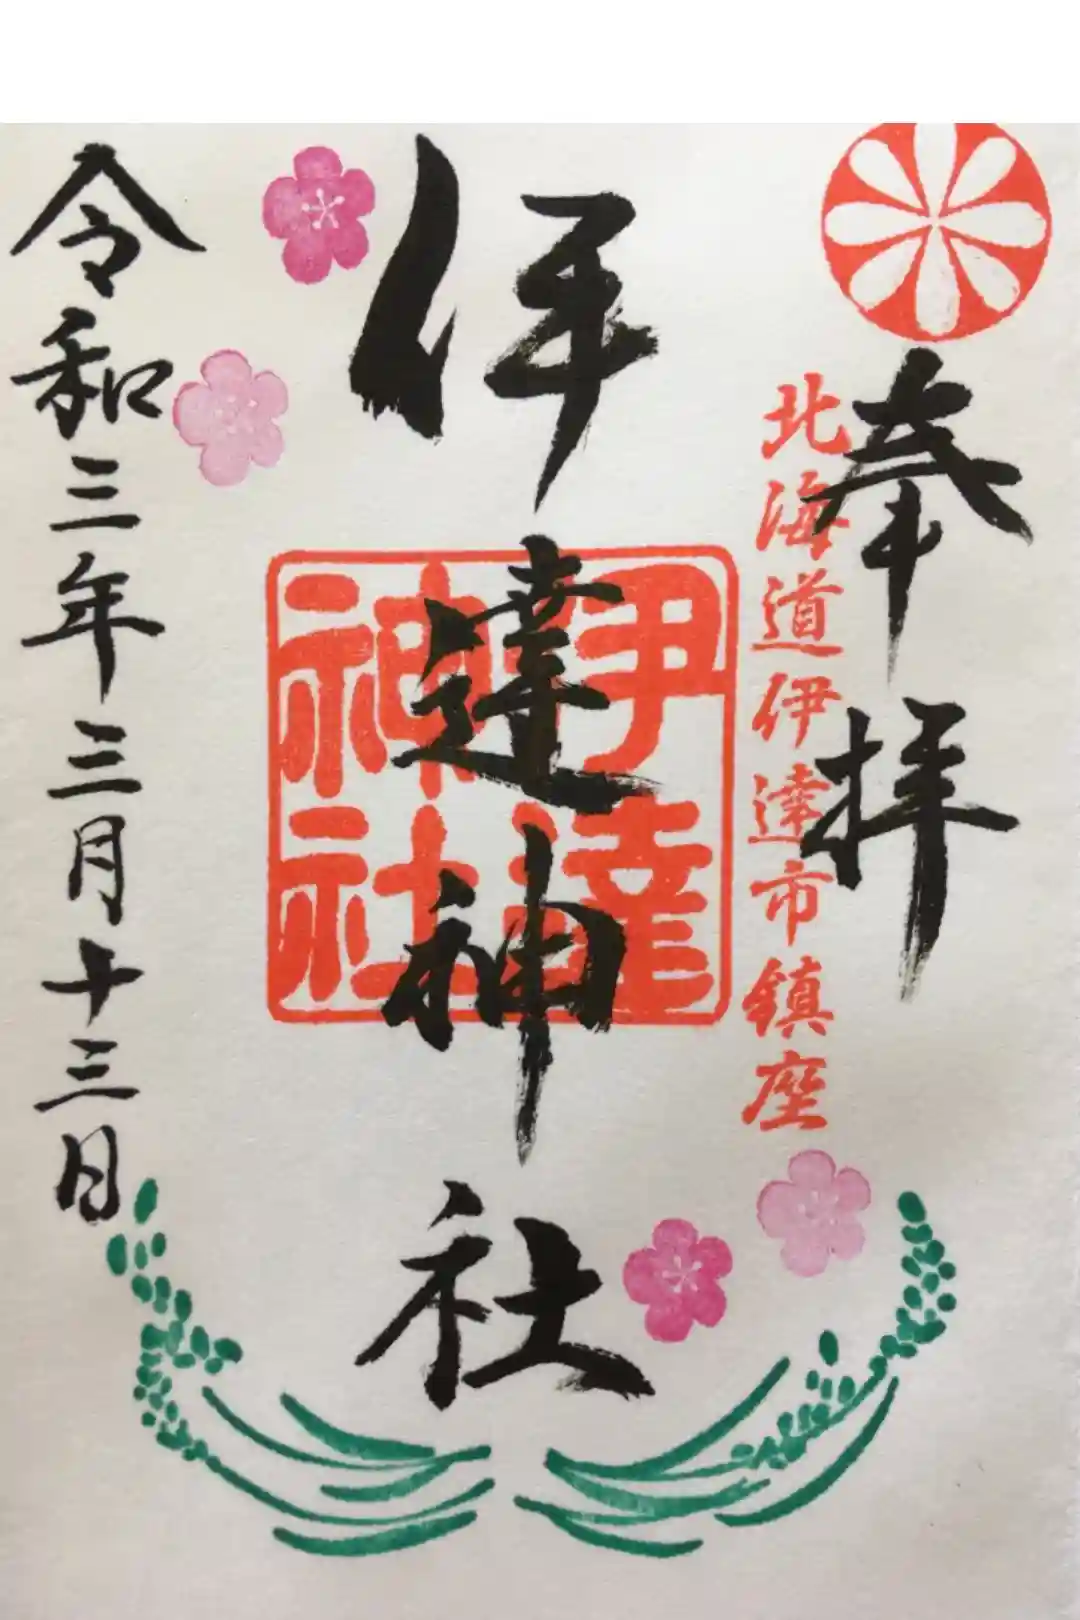 奉拝
北海道伊達市鎮座
伊達神社
伊達
神社
令和三年三月十三日